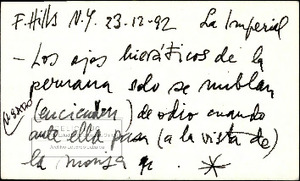 F. Hills N.Y. 23-12-92 La Imperial
- Los ojos hieráticos de la
peruana solo se nublan
(encienden) de odio cuando
ante ella pasa (a la vista de)
la monja